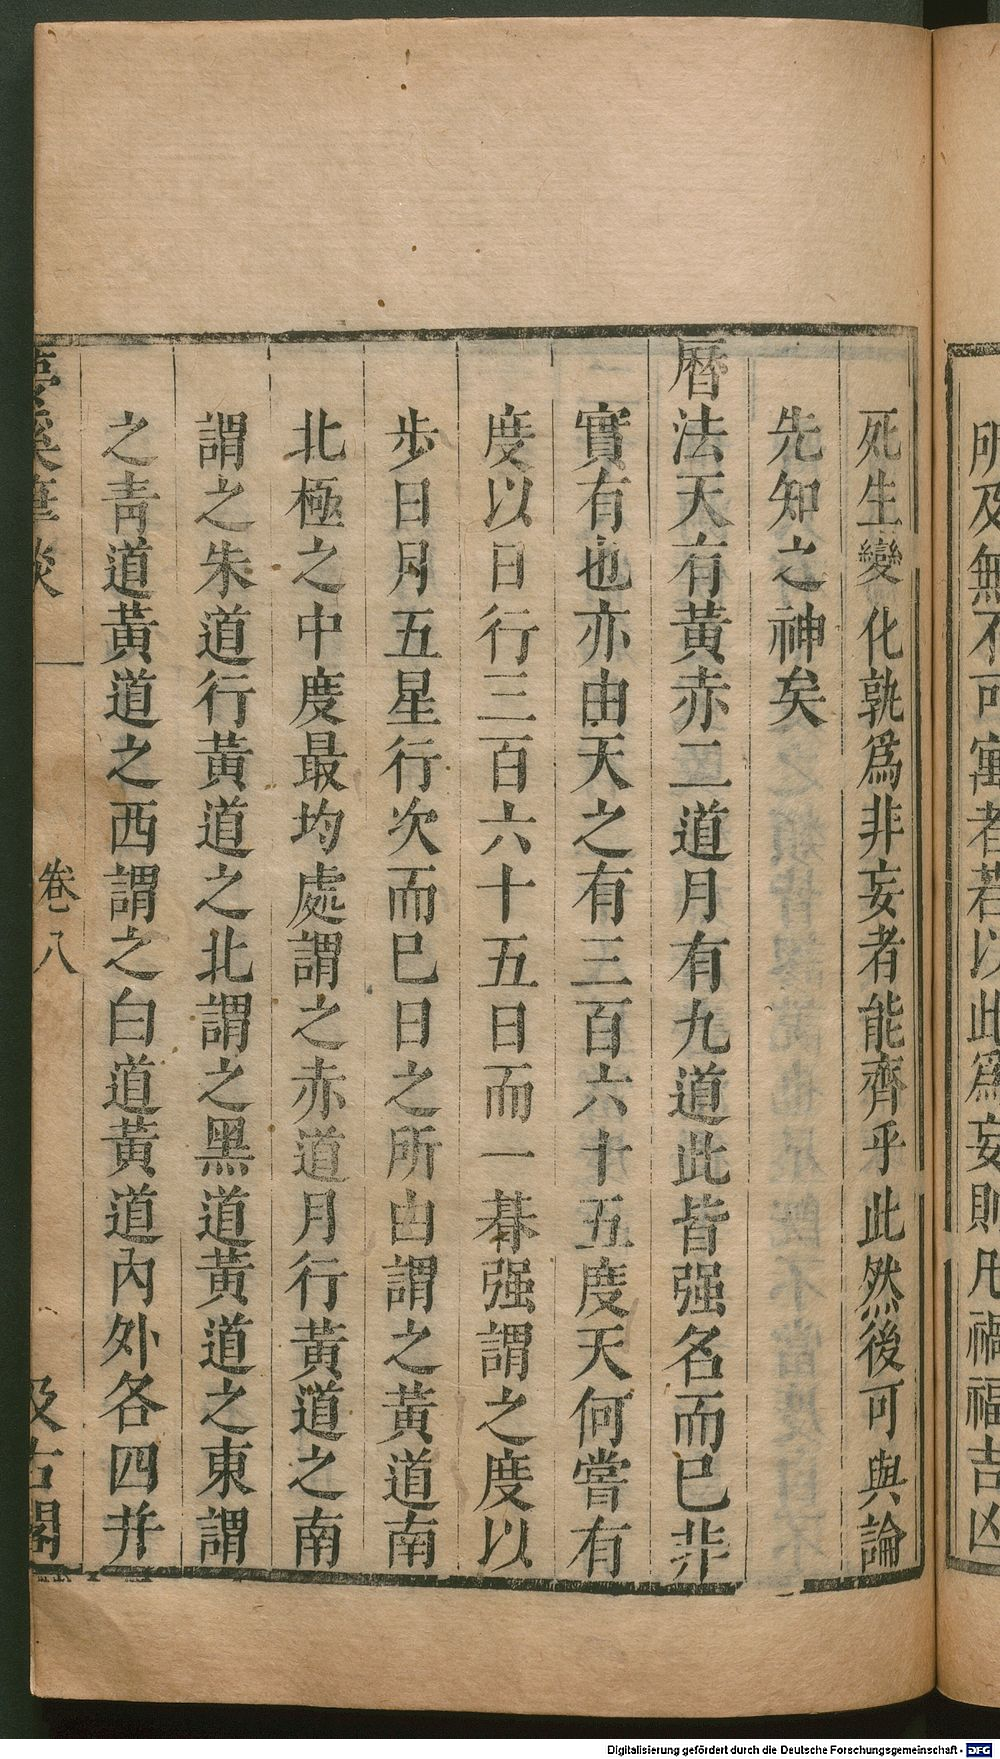 所及無不可寓者若以此爲妄則凡禍福吉凶
死生變化孰爲非妄者能齊乎此然後可與論
先知之神矣
曆法天有黃赤二道月有九道此皆强名而已非
實有也亦由天之有三百六十五度天何嘗有
度以日行三百六十五日而一朞强謂之度以
步日月五星行次而已日之所由謂之黃道南
北極之中度最均處謂之赤道月行黃道之南
謂之朱道行黃道之北謂之黑道黃道之東謂
之靑道黃道之西謂之白道黃道內外各四并
夢溪筆談
卷八
汲古閣
Digitalisierung gefördert durch die Deutsche Forschungsgemeinschaft - DFG